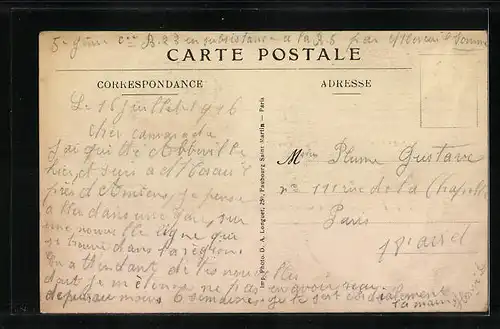 5e Génie Cie B. 23 en subsistance à la R. S par Moreuil Somme
CARTE POSTALE
CORRESPONDANCE
ADRESSE
Le 16 juillet 1916
Cher camarade
J'ai quitté Abbeville
hier, et suis à Moreuil
près d'Amiens, je pense
aller dans une gare, sur
une nouvelle ligne qui
se trouve dans la région.
En attendant de tes nouvelles
dont je m'étonne ne pas en avoir reçu
depuis au moins 6 semaines. Je te sert cordialement
la main
Imp. Photo. D. A. Longuet, 250, Faubourg Saint-Martin — Paris
Plume Gustave
111 rue de la Chapelle
Paris
18e arrd